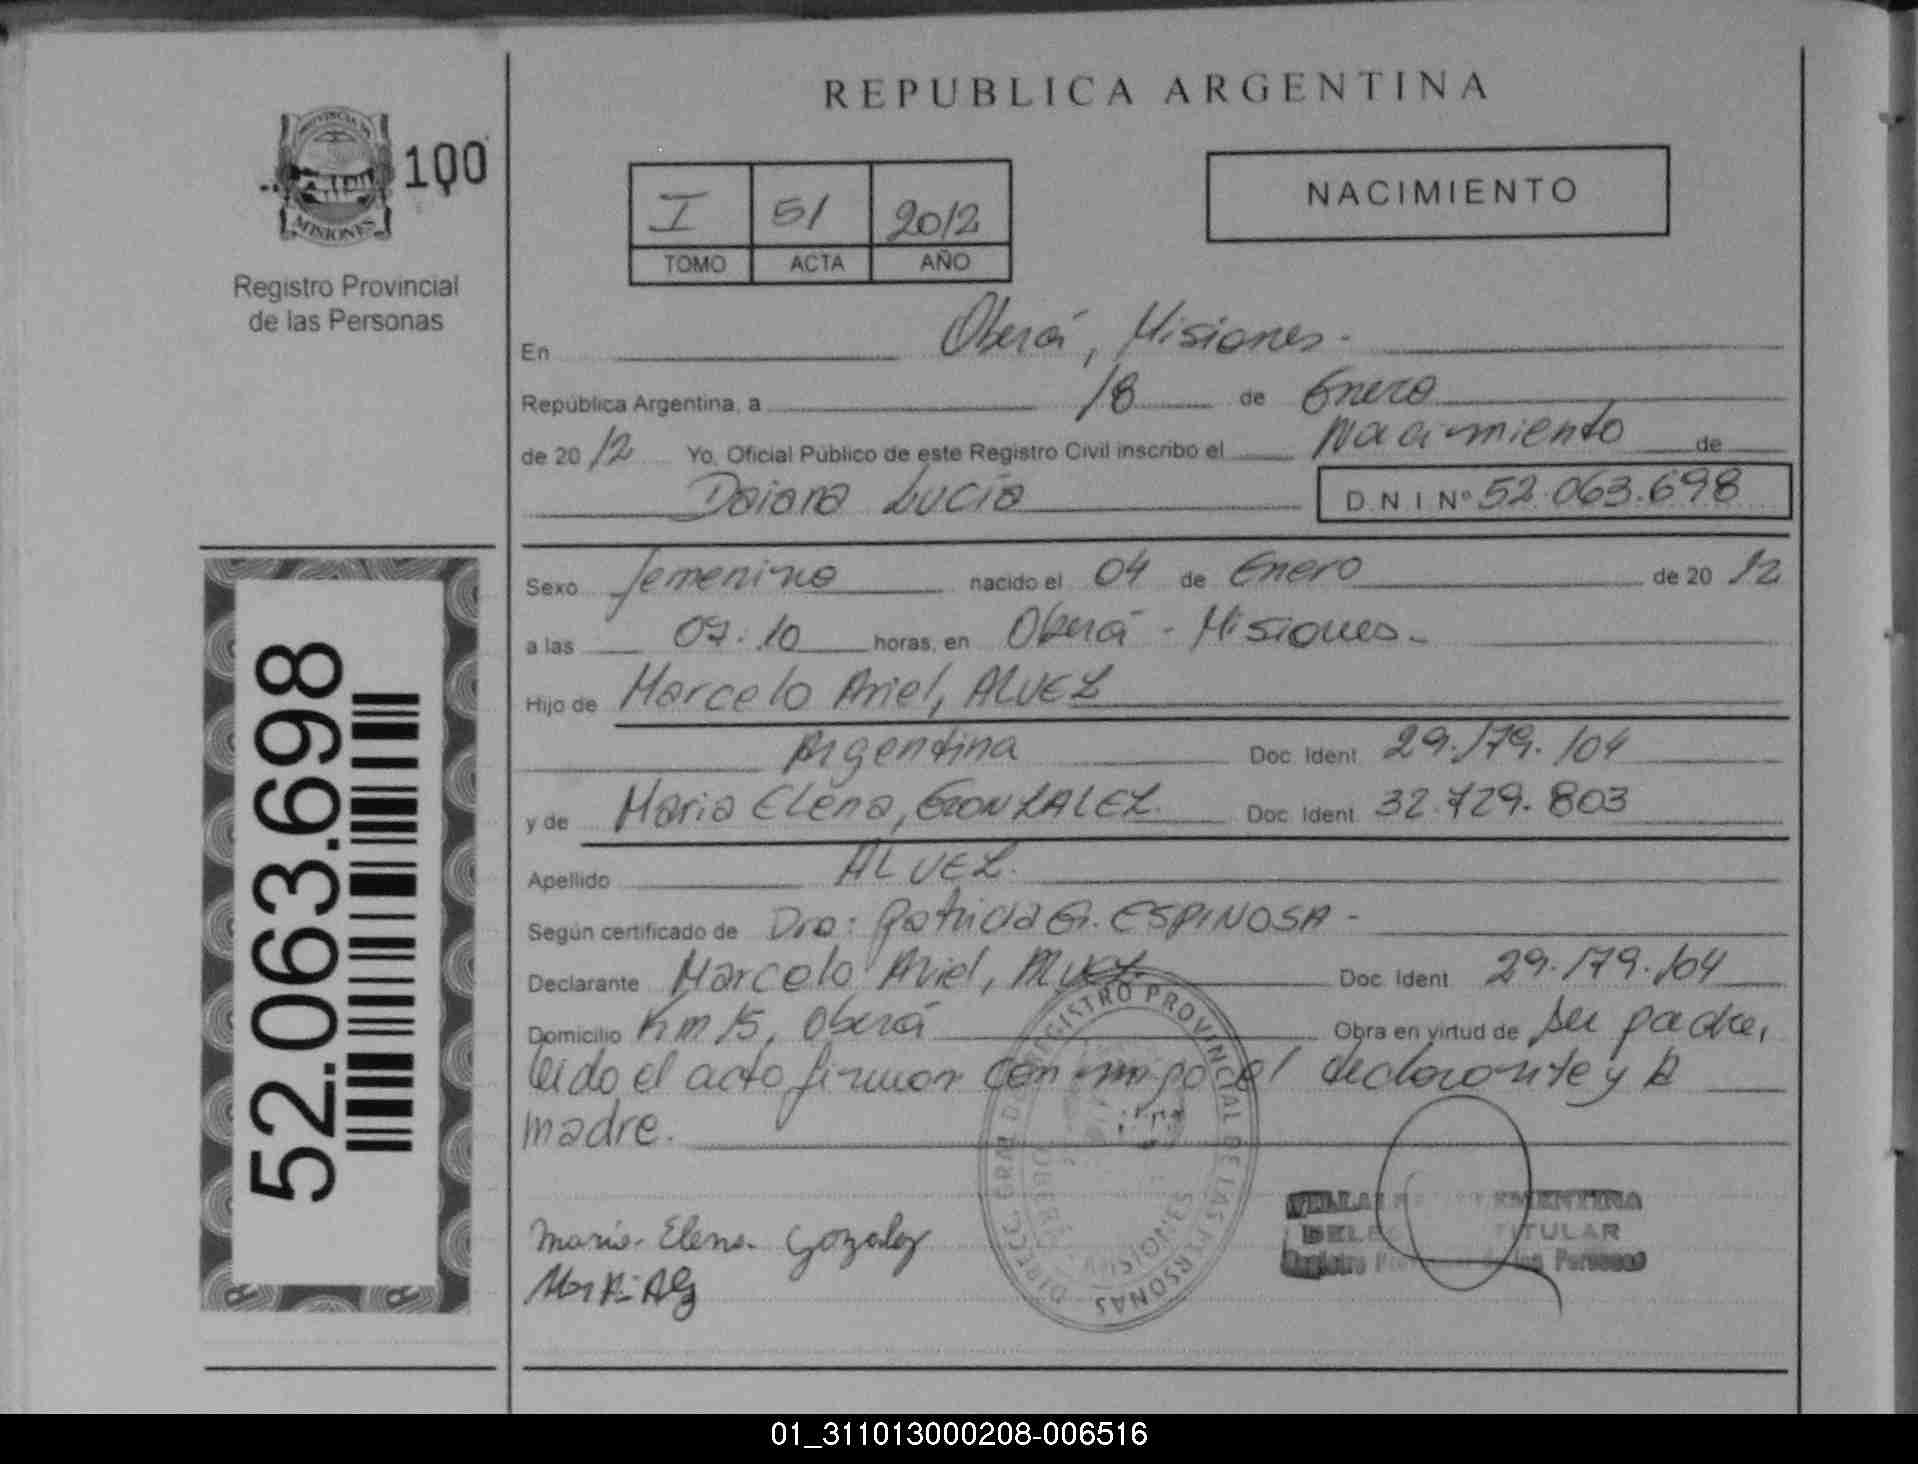 REPUBLICA ARGENTINA
PROVINCIA DE
MISIONES
100
Registro Provincial
de las Personas
I 51 2012
TOMO ACTA AÑO
NACIMIENTO
En Oberá, Misiones.
República Argentina, a 18 de Enero
de 2012 Yo, Oficial Público de este Registro Civil inscribo el Nacimiento de
Daiana Lucía D N I Nº 52.063.698
Sexo femenino nacido el 04 de Enero de 2012
a las 07:10 horas, en Oberá - Misiones.
Hijo de Marcelo Ariel, ALVEZ
Argentina Doc. Ident. 29.179.104
y de Maria Elena, GONZALEZ. Doc. Ident. 32.729.803
Apellido ALVEZ.
Según certificado de Dra: Patricia G. ESPINOSA -
Declarante Marcelo Ariel, ALVEZ. Doc. Ident. 29.179.104
Domicilio Km 15, Oberá Obra en virtud de ser padre,
leído el acto firman conmigo el declarante y la
madre.
52.063.698
DIRECC. GRAL DE REGISTRO PROVINCIAL DE LAS PERSONAS
OBERÁ
MISIONES
Maria Elena Gonzalez
TITULAR
Registro de las Personas
01_311013000208-006516